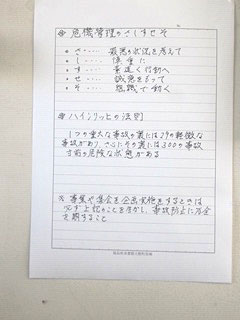 ◎ 危機管理のさしすせそ
・さ・・・・最悪の状況を考えて
・し・・・・慎重に
・す・・・・素速く行動へ
・せ・・・・誠意をもって
・そ・・・・組織で動く
◎ ハインリッヒの法則
1つの重大な事故の裏には29の軽微な
事故があり、さらにその裏には300の事故
寸前の危険な状態がある
※ 事業や集会を企画実施をするときは
必ず上記のことを活かし、事故防止に万全
を期すること